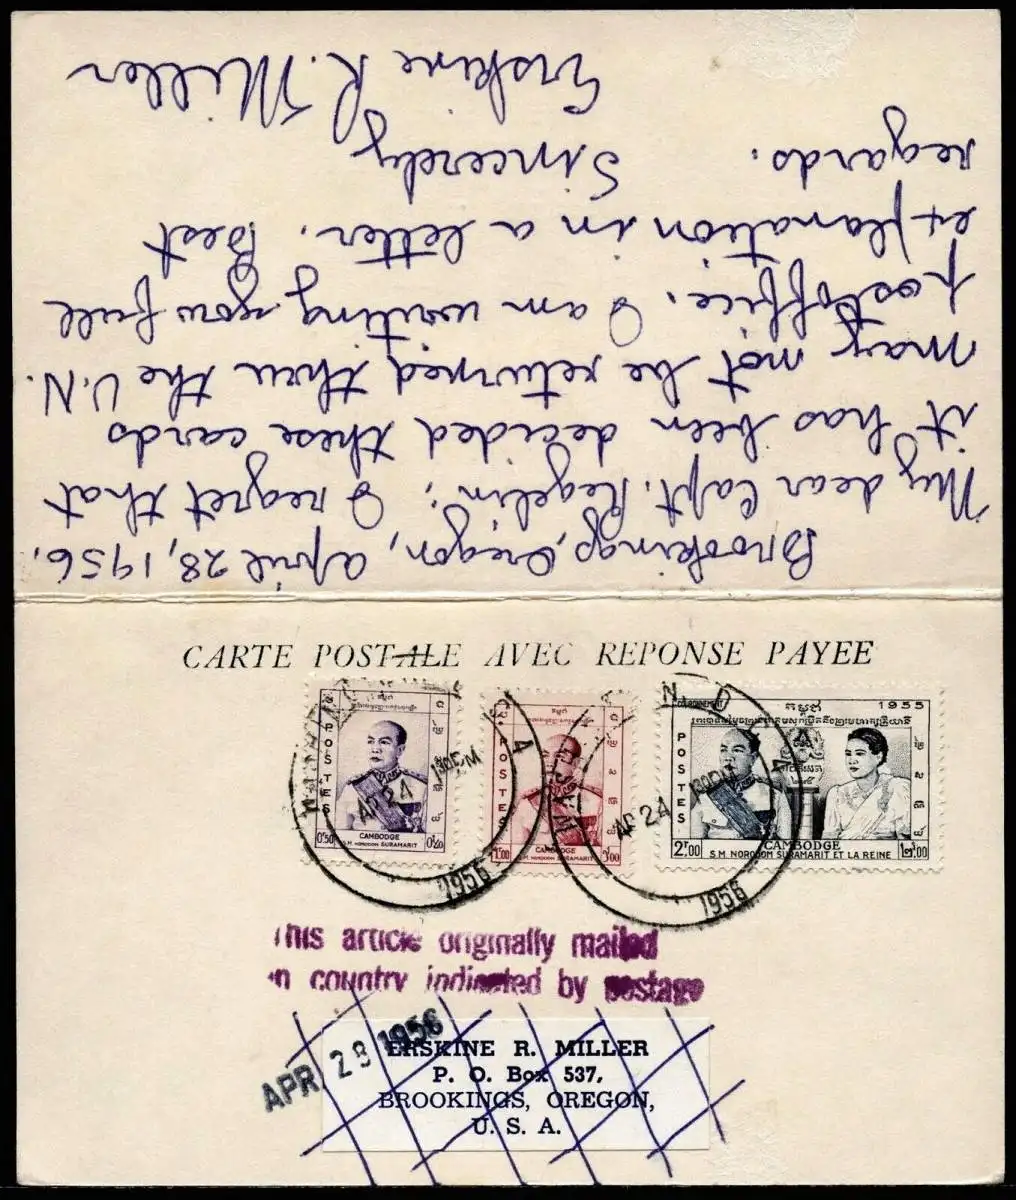 Brookings, Oregon, April 28, 1956.
My dear Capt. Regelin; I regret that
it has been decided these cards
may not be returned thru the U.N.
postoffice. I am writing you full
explanation in a letter. Best
regards.
Sincerely
Erskine R. Miller
CARTE POSTALE AVEC REPONSE PAYEE
POSTES
0F50
CAMBODGE
S.M. NORODOM SURAMARIT
POSTES
CAMBODGE
S.M. NORODOM SURAMARIT
1955
កម្ពុជា
POSTES
2F00
CAMBODGE
S.M. NORODOM SURAMARIT ET LA REINE
AP 24
130PM
1956
AP 24
130PM
1956
This article originally mailed
in country indicated by postage
APR 28 1956
ERSKINE R. MILLER
P. O. Box 537,
BROOKINGS, OREGON,
U. S. A.